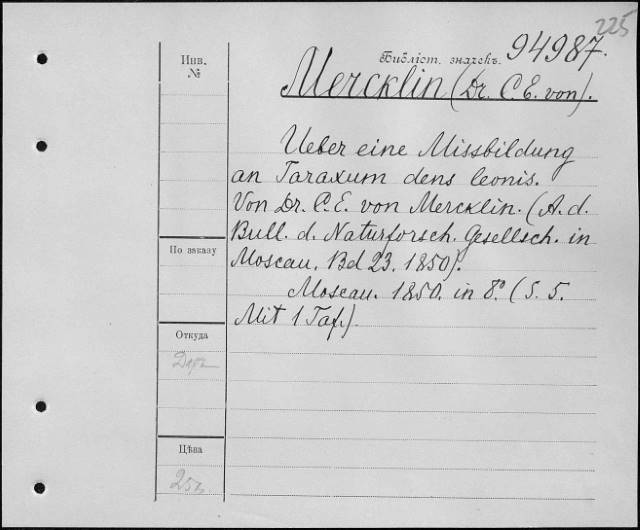 225
Инв.
№
Библіот. значекъ. 94987.
Mercklin (Dr. C. E. von).
Ueber eine Missbildung
an Taraxum dens leonis.
Von Dr. C. E. von Mercklin. (A. d.
Bull. d. Naturforsch. Gesellsch. in
Moscau. Bd 23. 1850).
Moscau. 1850. in 8° (S. 5.
Mit 1 Taf.).
По заказу
Откуда
Цѣна